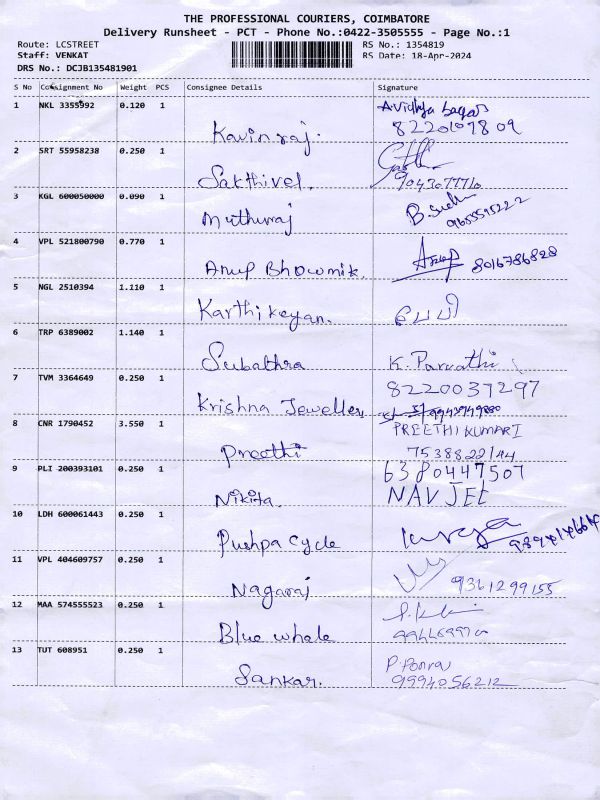 THE PROFESSIONAL COURIERS, COIMBATORE
Delivery Runsheet - PCT - Phone No.:0422-3505555 - Page No.:1
Route: LCSTREET RS No.: 1354819
Staff: VENKAT RS Date: 18-Apr-2024
DRS No.: DCJB135481901
S No Consignment No Weight PCS Consignee Details Signature
1 NKL 3355992 0.120 1 Kavin raj. A.vidhya Sagar
8220107809
2 SRT 55958238 0.250 1 Sakthivel.
9043077710
3 KGL 600050000 0.090 1 Muthuraj B.
9655595222
4 VPL 521800790 0.770 1 Anup Bhowmik. Anup 8016786828
5 NGL 2510394 1.110 1 Karthikeyan. பேபி
6 TRP 6389002 1.140 1 Subathra K. Parvathi
7 TVM 3364649 0.250 1 Krishna Jeweller 8220037297
8 CNR 1790452 3.550 1 Preethi PREETHI KUMARI
7538822144
9 PLI 200393101 0.250 1 Nikita. 6380447507
NAVJEE
10 LDH 600061443 0.250 1 Pushpa Cycle
11 VPL 404609757 0.250 1 Nagaraj 9361299155
12 MAA 574555523 0.250 1 Blue whale
13 TUT 608951 0.250 1 Sankar. P. Ponraj
9994056212